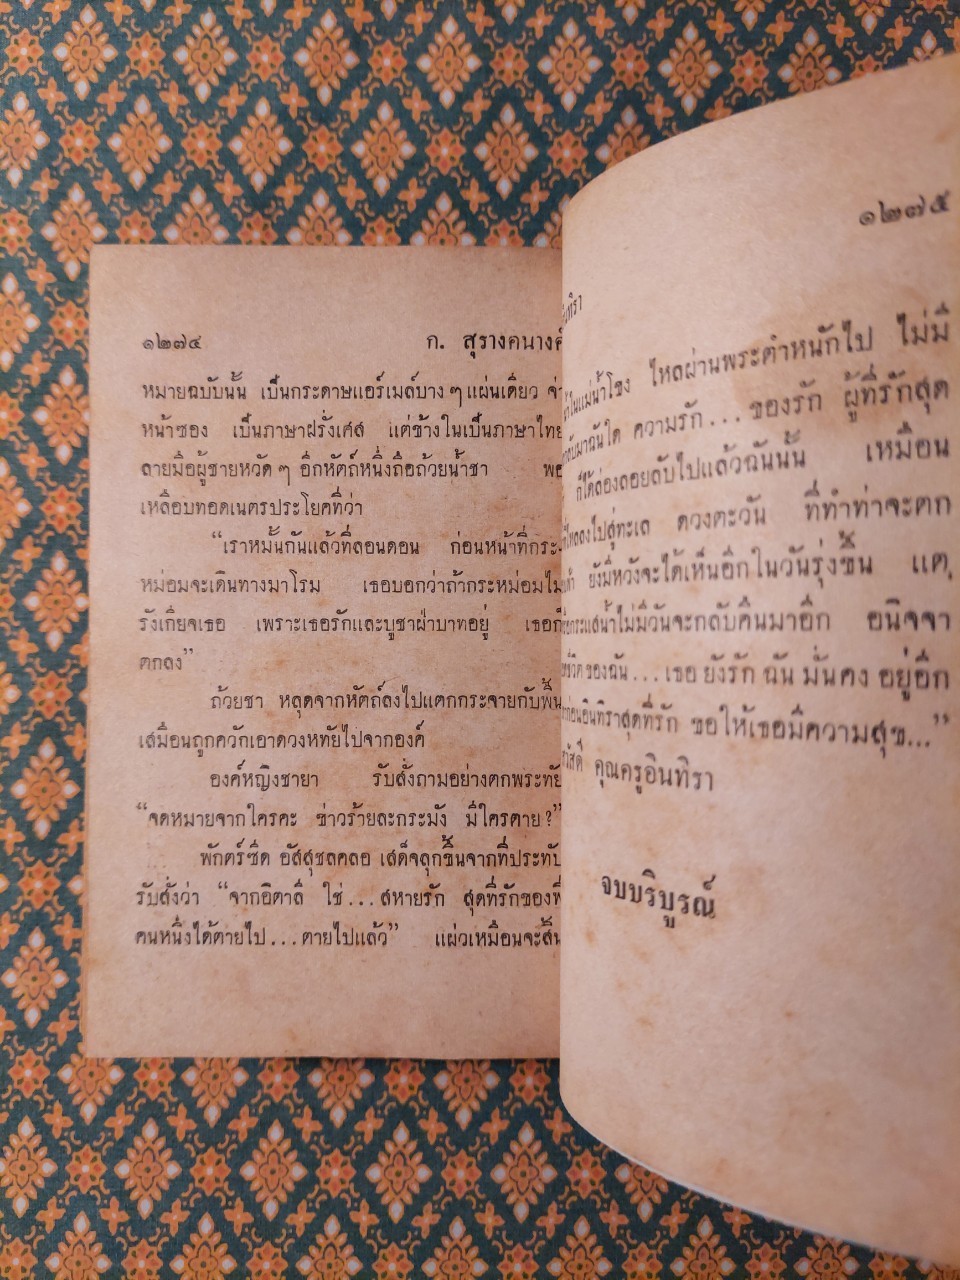 ๑๒๗๔
ก. สุรางคนางค์
หมายฉบับนั้น เป็นกระดาษแอร์เมล์บาง ๆ แผ่นเดียว จ่า
หน้าซอง เป็นภาษาฝรั่งเศส แต่ข้างในเป็นภาษาไทย
ลายมือผู้ชายหวัด ๆ อีกหัตถ์หนึ่งถือถ้วยน้ำชา พอ
เหลือบทอดเนตรประโยคที่ว่า
“เราหมั้นกันแล้วที่ลอนดอน ก่อนหน้าที่กระ-
หม่อมจะเดินทางมาโรม เธอบอกว่าถ้ากระหม่อมไม่
รังเกียจเธอ เพราะเธอรักและบูชาฝ่าบาทอยู่ เธอก็
ตกลง”
ถ้วยชา หลุดจากหัตถ์ลงไปแตกกระจายกับพื้น
เสมือนถูกควักเอาดวงหทัยไปจากองค์
องค์หญิงชายา รับสั่งถามอย่างตกพระทัย
“จดหมายจากใครคะ ข่าวร้ายละกระมัง มีใครตาย?”
พักตร์ซีด อัสสุชลคลอ เสด็จลุกขึ้นจากที่ประทับ
รับสั่งว่า “จากอิตาลี ใช่...สหายรัก สุดที่รักของพี่
คนหนึ่งได้ตายไป...ตายไปแล้ว” แผ่วเหมือนจะสิ้น
๑๒๗๕
ในแม่น้ำโขง ไหลผ่านพระตำหนักไป ไม่มี
กลับมาฉันใด ความรัก...ของรัก ผู้ที่รักสุด
ก็ได้ล่องลอยลับไปแล้วฉันนั้น เหมือน
ไหลลงไปสู่ทะเล ดวงตะวัน ที่ทำท่าจะตก
ยังมีหวังจะได้เห็นอีกในวันรุ่งขึ้น แต่
กระแสน้ำไม่มีวันจะกลับคืนมาอีก อนิจจา
ชีวิตของฉัน...เธอ ยังรัก ฉัน มั่นคง อยู่อีก
อินทิราสุดที่รัก ขอให้เธอมีความสุข...”
สวัสดี คุณครูอินทิรา
จบบริบูรณ์